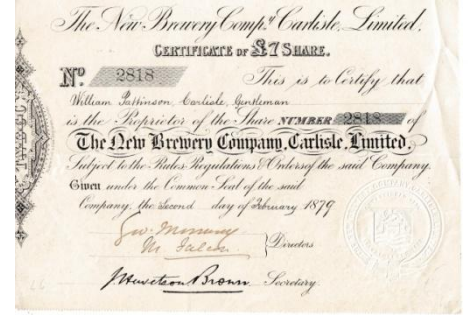 The New Brewery Compy. Carlisle, Limited.
CERTIFICATE OF £7 SHARE.
No. 2818 This is to Certify that
William Pattinson, Carlisle, Gentleman
is the Proprietor of the Share NUMBER 2818 of
The New Brewery Company, Carlisle, Limited,
Subject to the Rules Regulations & Orders of the said Company.
Given under the Common Seal of the said
Company, the Second day of February 1879
Directors
J. Hewetson Brown Secretary.